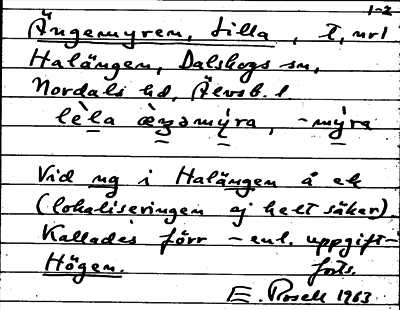 1-2
Ängemyren, Lilla, t, nr 1
Halängen, Dalskogs sn,
Nordals hd, Älvsb. l.
lèla æ̀ŋəmýra, -mỳra
Vid ng i Halängen å ek
(lokaliseringen ej helt säker).
Kallades förr – enl. uppgift –
Högen. forts.
E. Rosell 1963